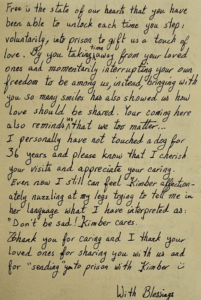 Free is the state of our hearts that you have
been able to unlock each time you step,
voluntarily, into prison to gift us a touch of
love. By you taking time away from your loved
ones and momentarily interrupting your own
freedom to be among us, instead, bringing with
you so many smiles has also showed us how
love should be shared. Your coming here
also reminds that we too matter...
I personally have not touched a dog for
36 years and please know that I cherish
your visits and appreciate your caring.
Even now I still can feel Kimber affection-
ately nuzzling at my legs trying to tell me in
her language what I have interpreted as:
"Don't be sad! Kimber cares."
Thank you for caring and I thank your
loved ones for sharing you with us and
for "sending" into prison with Kimber
With Blessings